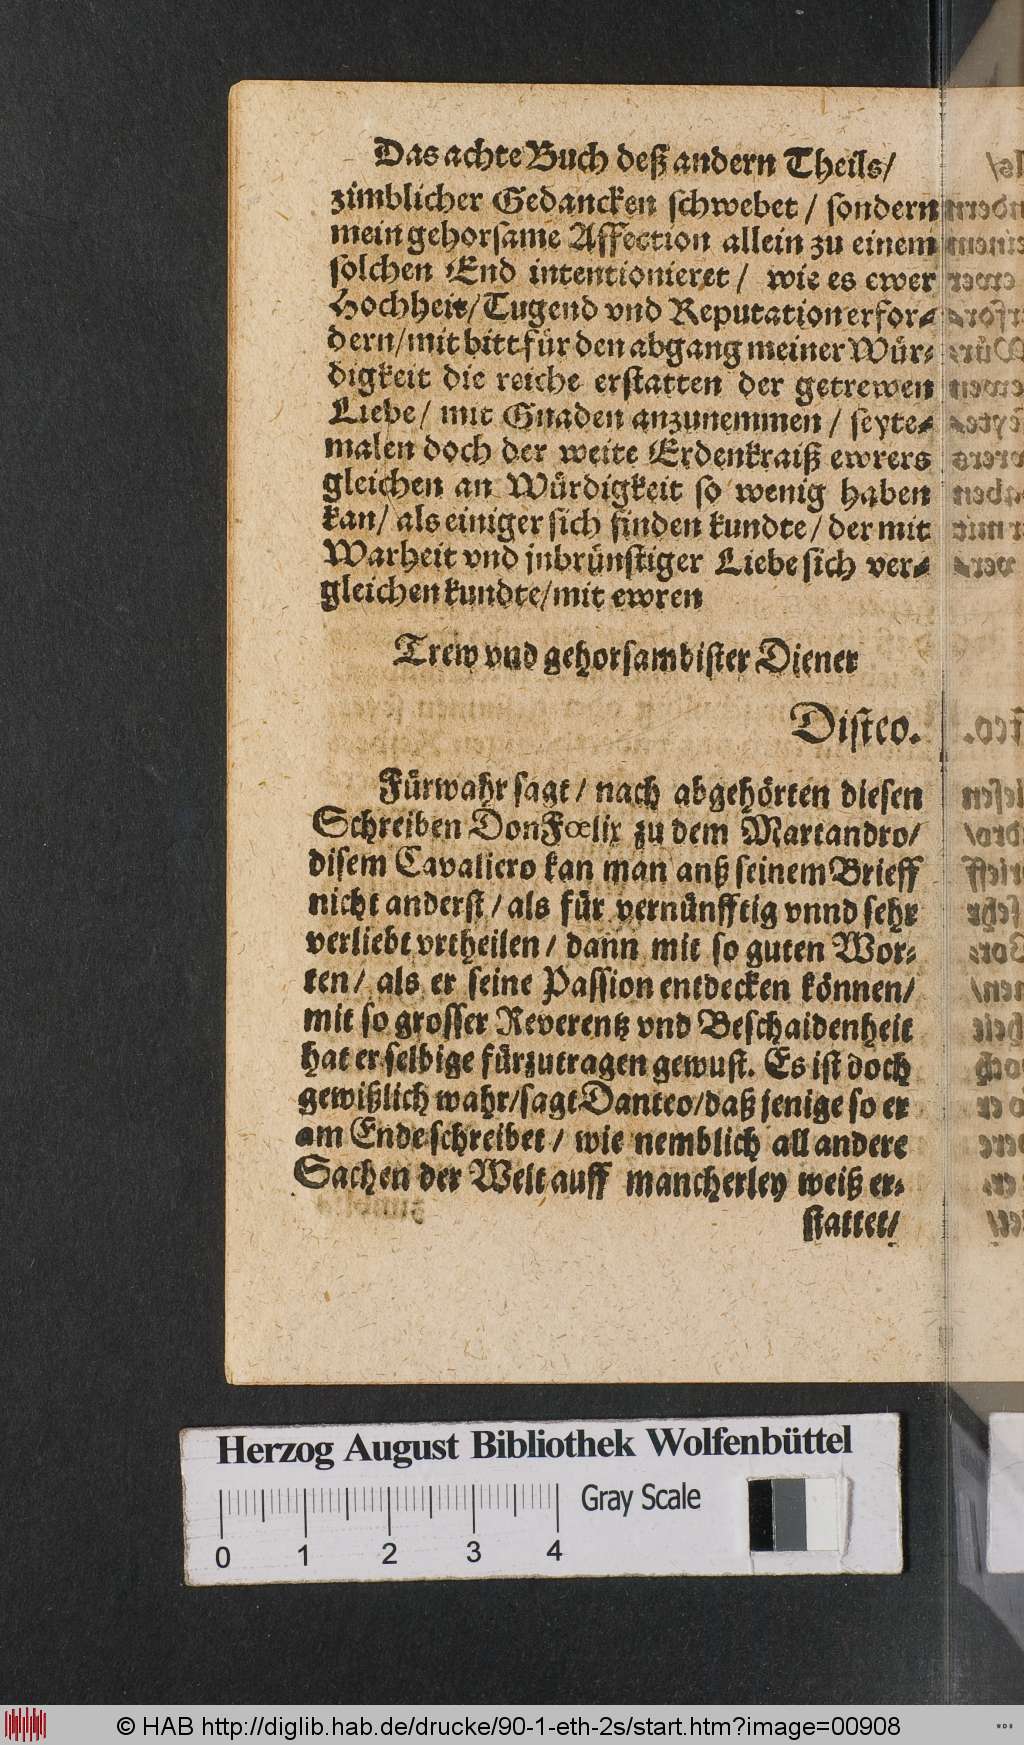 Das achte Buch deß andern Theils/
zimblicher Gedancken schwebet / sondern
mein gehorsame Affection allein zu einem
solchen End intentionieret / wie es ewer
Hochheit/Tugend vnd Reputation erfor-
dern/mit bitt für den abgang meiner Wür-
digkeit die reiche erstatten der getrewen
Liebe/ mit Gnaden anzunemmen / seyte-
malen doch der weite Erdenkraiß ewrers
gleichen an Würdigkeit so wenig haben
kan/ als einiger sich finden kundte/ der mit
Warheit vnd jnbrünstiger Liebe sich ver-
gleichen kundte/mit ewren
Trew vnd gehorsambister Diener
Disteo.
Fürwahr sagt/ nach abgehörten diesen
Schreiben Don Fœlix zu dem Martandro/
disem Cavaliero kan man auß seinem Brieff
nicht anderst/ als für vernünfftig vnnd sehr
verliebt vrtheilen/ dann mit so guten Wor-
ten/ als er seine Passion entdecken können/
mit so grosser Reverentz vnd Beschaidenheit
hat er selbige fürzutragen gewust. Es ist doch
gewißlich wahr/sagt Danteo/daß jenige so er
am Ende schreibet / wie nemblich all andere
Sachen der Welt auff mancherley weiß er-
stattet/
Herzog August Bibliothek Wolfenbüttel
Gray Scale
0 1 2 3 4
© HAB http://diglib.hab.de/drucke/90-1-eth-2s/start.htm?image=00908